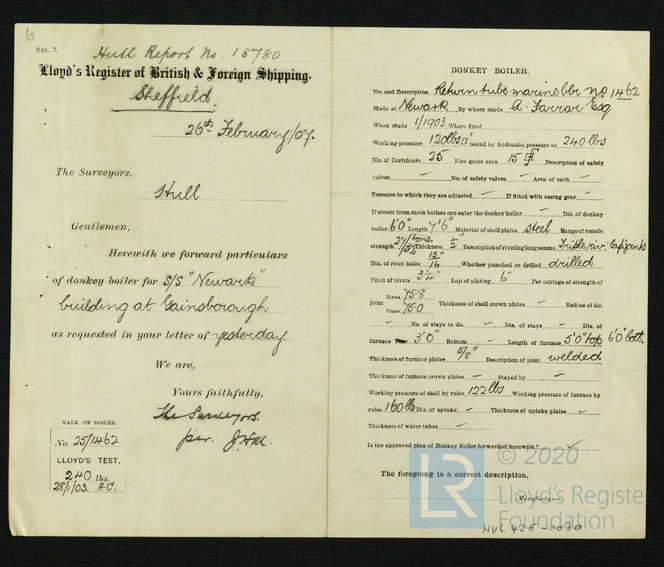 6
Rpt. 5.
Hull Report No. 18780
Lloyd's Register of British & Foreign Shipping.
Sheffield.
26th February/07.
The Surveyors,
Hull
Gentlemen,
Herewith we forward particulars
of donkey boiler for S/S "Newark"
building at Gainsborough
as requested in your letter of yesterday.
We are,
Yours faithfully,
The Surveyors.
per.
MARK ON BOILER.
No. 25/1462
LLOYD'S TEST,
240 lbs.
28/1/03. A.C.
DONKEY BOILER.
No. and Description Return tube marine blr no 1462.
Made at Newark By whom made A. Farrar Esq
When made 1/1903 Where fixed
Working pressure 120lbs □" tested by hydraulic pressure to 240 lbs
No. of Certificate 25 Fire grate area 15 Description of safety
valves — No. of safety valves — Area of each —
Pressure to which they are adjusted — If fitted with easing gear —
If steam from main boilers can enter the donkey boiler — Dia. of donkey
boiler 6'0" Length 7'6" Material of shell plates steel Range of tensile
strength 27/32 tons. Thickness 1/2" Description of riveting long. seams Treble riv. lap joints
Dia. of rivet holes 13/16" Whether punched or drilled drilled
Pitch of rivets 3 1/4" Lap of plating 6" Per centage of strength of
joint Rivets 75.8 Plates 75.0 Thickness of shell crown plates — Radius of do.
— No. of stays to do. — Dia. of stays — Dia. of
furnace 3'0" Bottom — Length of furnace 5'0" top 6'0" bott.
Thickness of furnace plates 5/8" Description of joint welded
Thickness of furnace crown plates — Stayed by —
Working pressure of shell by rules 122 lbs Working pressure of furnace by
rules 160 lbs Dia. of uptake — Thickness of uptake plates —
Thickness of water tubes —
Is the approved plan of Donkey Boiler forwarded herewith?
The foregoing is a correct description,
Manufacturer.
LR
© 2020
Lloyd's Register
Foundation
HUL 425-0030